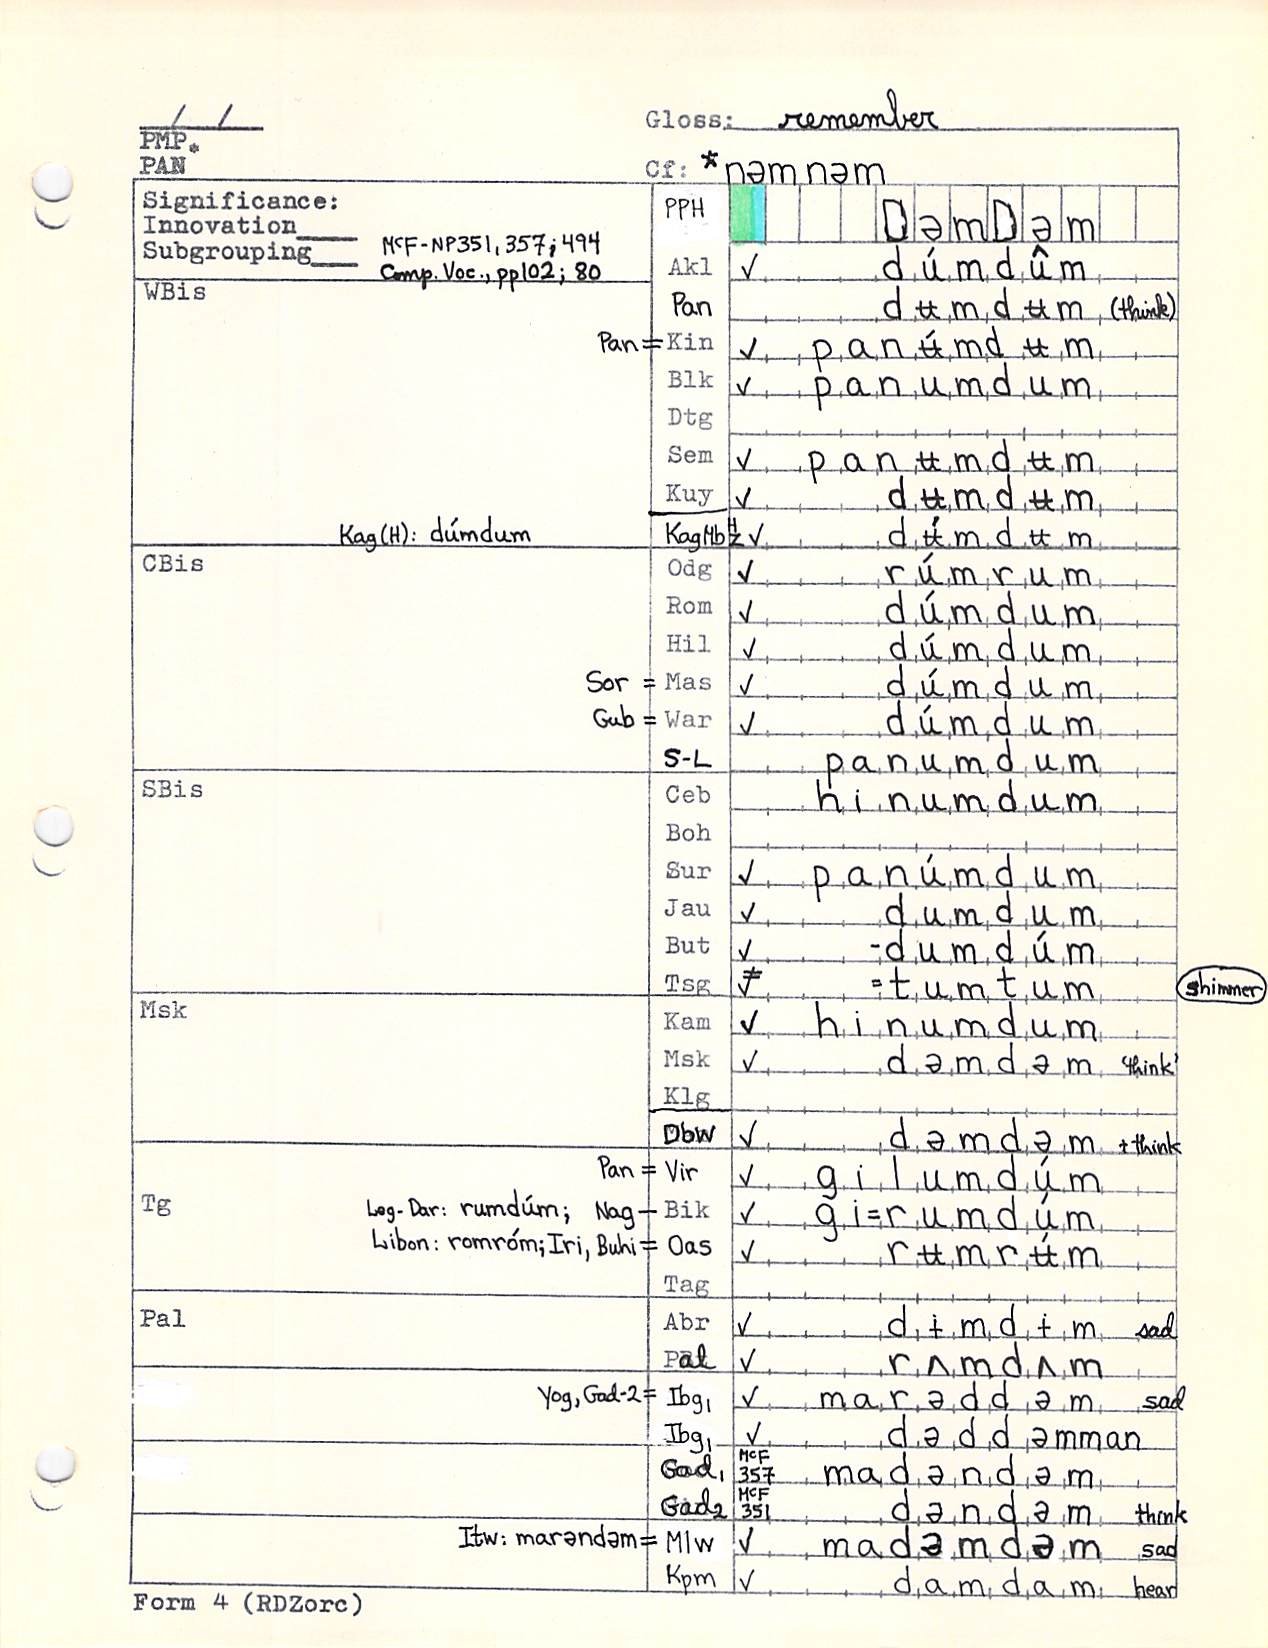 / /
Gloss: remember
PMP.
PAN
Cf: *nəmnəm
Significance:
Innovation____
Subgrouping____
McF-NP351, 357; 494
Comp. Voc., pp102; 80
PPH DəmDəm
WBis
Akl ✓ dúmdûm
Pan dʉmdʉm (think)
Pan = Kin ✓ panʉ́mdʉm
Blk ✓ panumdum
Dtg
Sem ✓ panʉmdʉm
Kuy ✓ dʉmdʉm
Kag(H): dúmdum KagMb H/Z ✓ dʉ́mdʉm
CBis
Odg ✓ rúmrum
Rom ✓ dúmdum
Hil ✓ dúmdum
Sor = Mas ✓ dúmdum
Gub = War ✓ dúmdum
S-L panumdum
SBis
Ceb hinumdum
Boh
Sur ✓ panúmdum
Jau ✓ dumdum
But ✓ -dumdúm
Tsg ✓ =tumtum shimmer
Msk
Kam ✓ hinumdum
Msk ✓ dəmdəm 'think'
Klg
Dbw ✓ dəmdəm + think
Pan = Vir ✓ gilumdúm
Tg
Leg-Dar: rumdúm; Nag - Bik ✓ gi=rumdúm
Libon: romróm; Iri, Buhi = Oas ✓ rʉmrʉ́m
Tag
Pal
Abr ✓ dɨmdɨm sad
Pal ✓ rʌmdʌm
Yog, Gad-2 = Ibg1 ✓ marəddəm sad
Ibg1 ✓ dəddəmman
Gad1 McF 357 madəndəm
Gad2 McF 351 dəndəm think
Itw: marəndəm = Mlw ✓ madəmdəm sad
Kpm ✓ damdam hear
Form 4 (RDZorc)